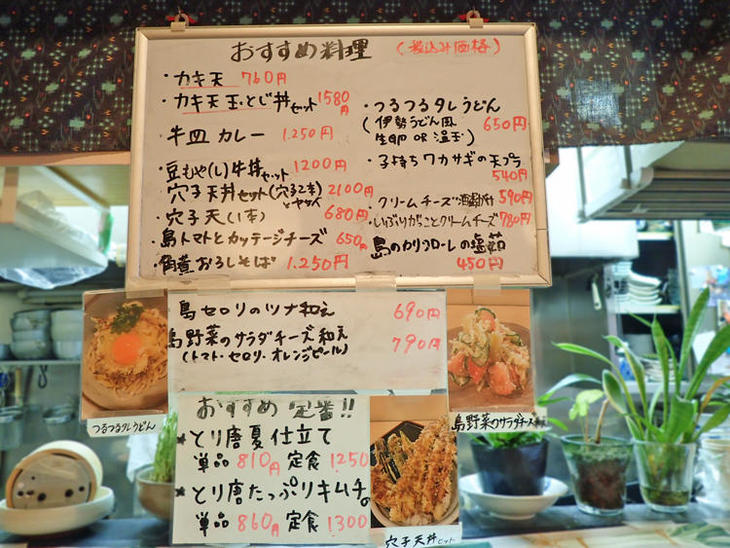 おすすめ料理 (税込み価格)
・カキ天 760円
・カキ天玉とじ丼セット 1580円
・牛皿カレー 1.250円
・豆もやし(L)牛丼セット 1200円
穴子天丼セット(穴子2本とヤサイ) 2100円
・穴子天(1本) 680円
・島トマトとカッテージチーズ 650円
・角煮おろしそば 1.250円
・つるつるタレうどん
(伊勢うどん風
生卵 OR 温玉) 650円
・子持ちワカサギの天プラ
540円
・クリームチーズ酒盗 590円
・いぶりがっことクリームチーズ 780円
島のカリフローレの
450円
・島セロリのツナ和え 690円
島野菜のサラダチーズ和え 790円
(トマト・セロリ・オレンジピール)
つるつるタレうどん
島野菜のサラダチーズ和え
おすすめ 定番!!
*とり唐夏仕立て
単品 810円 定食 1250
*とり唐たっぷりキムチ。
単品 860円 定食 1300
穴子天丼セット